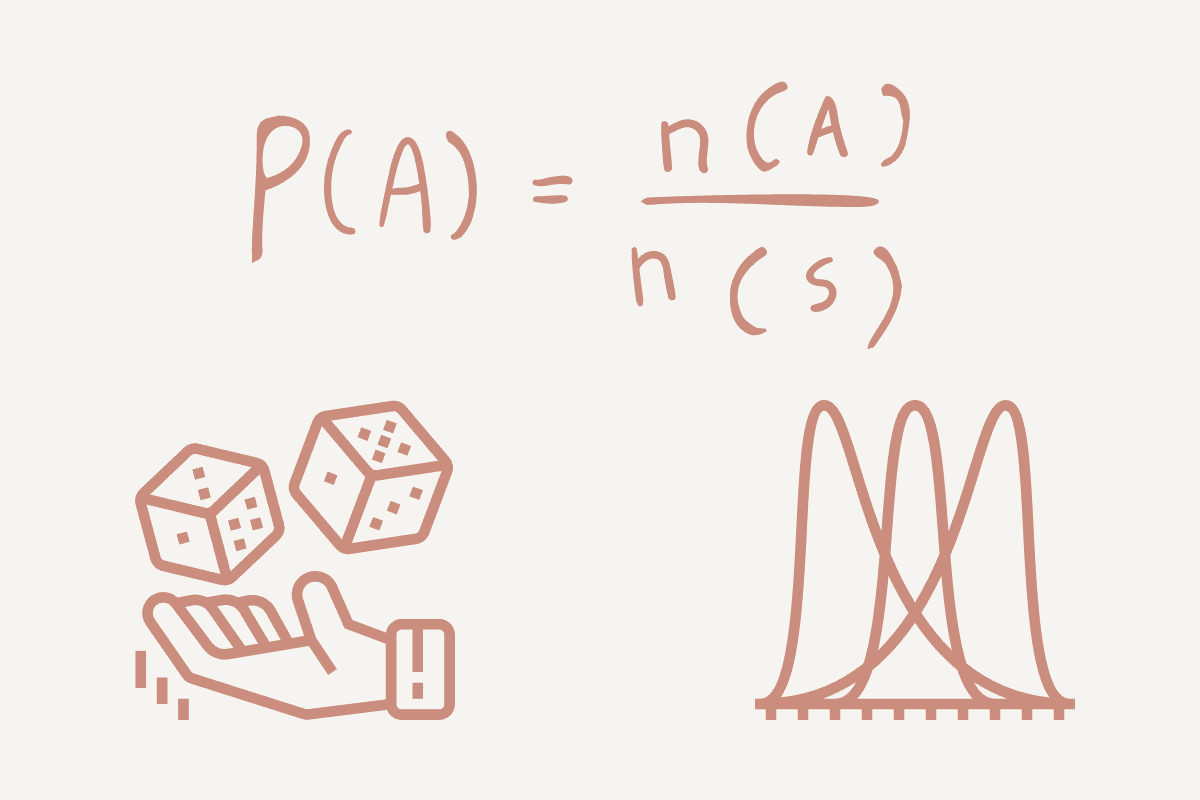 P(A) = n(A)
n(S)